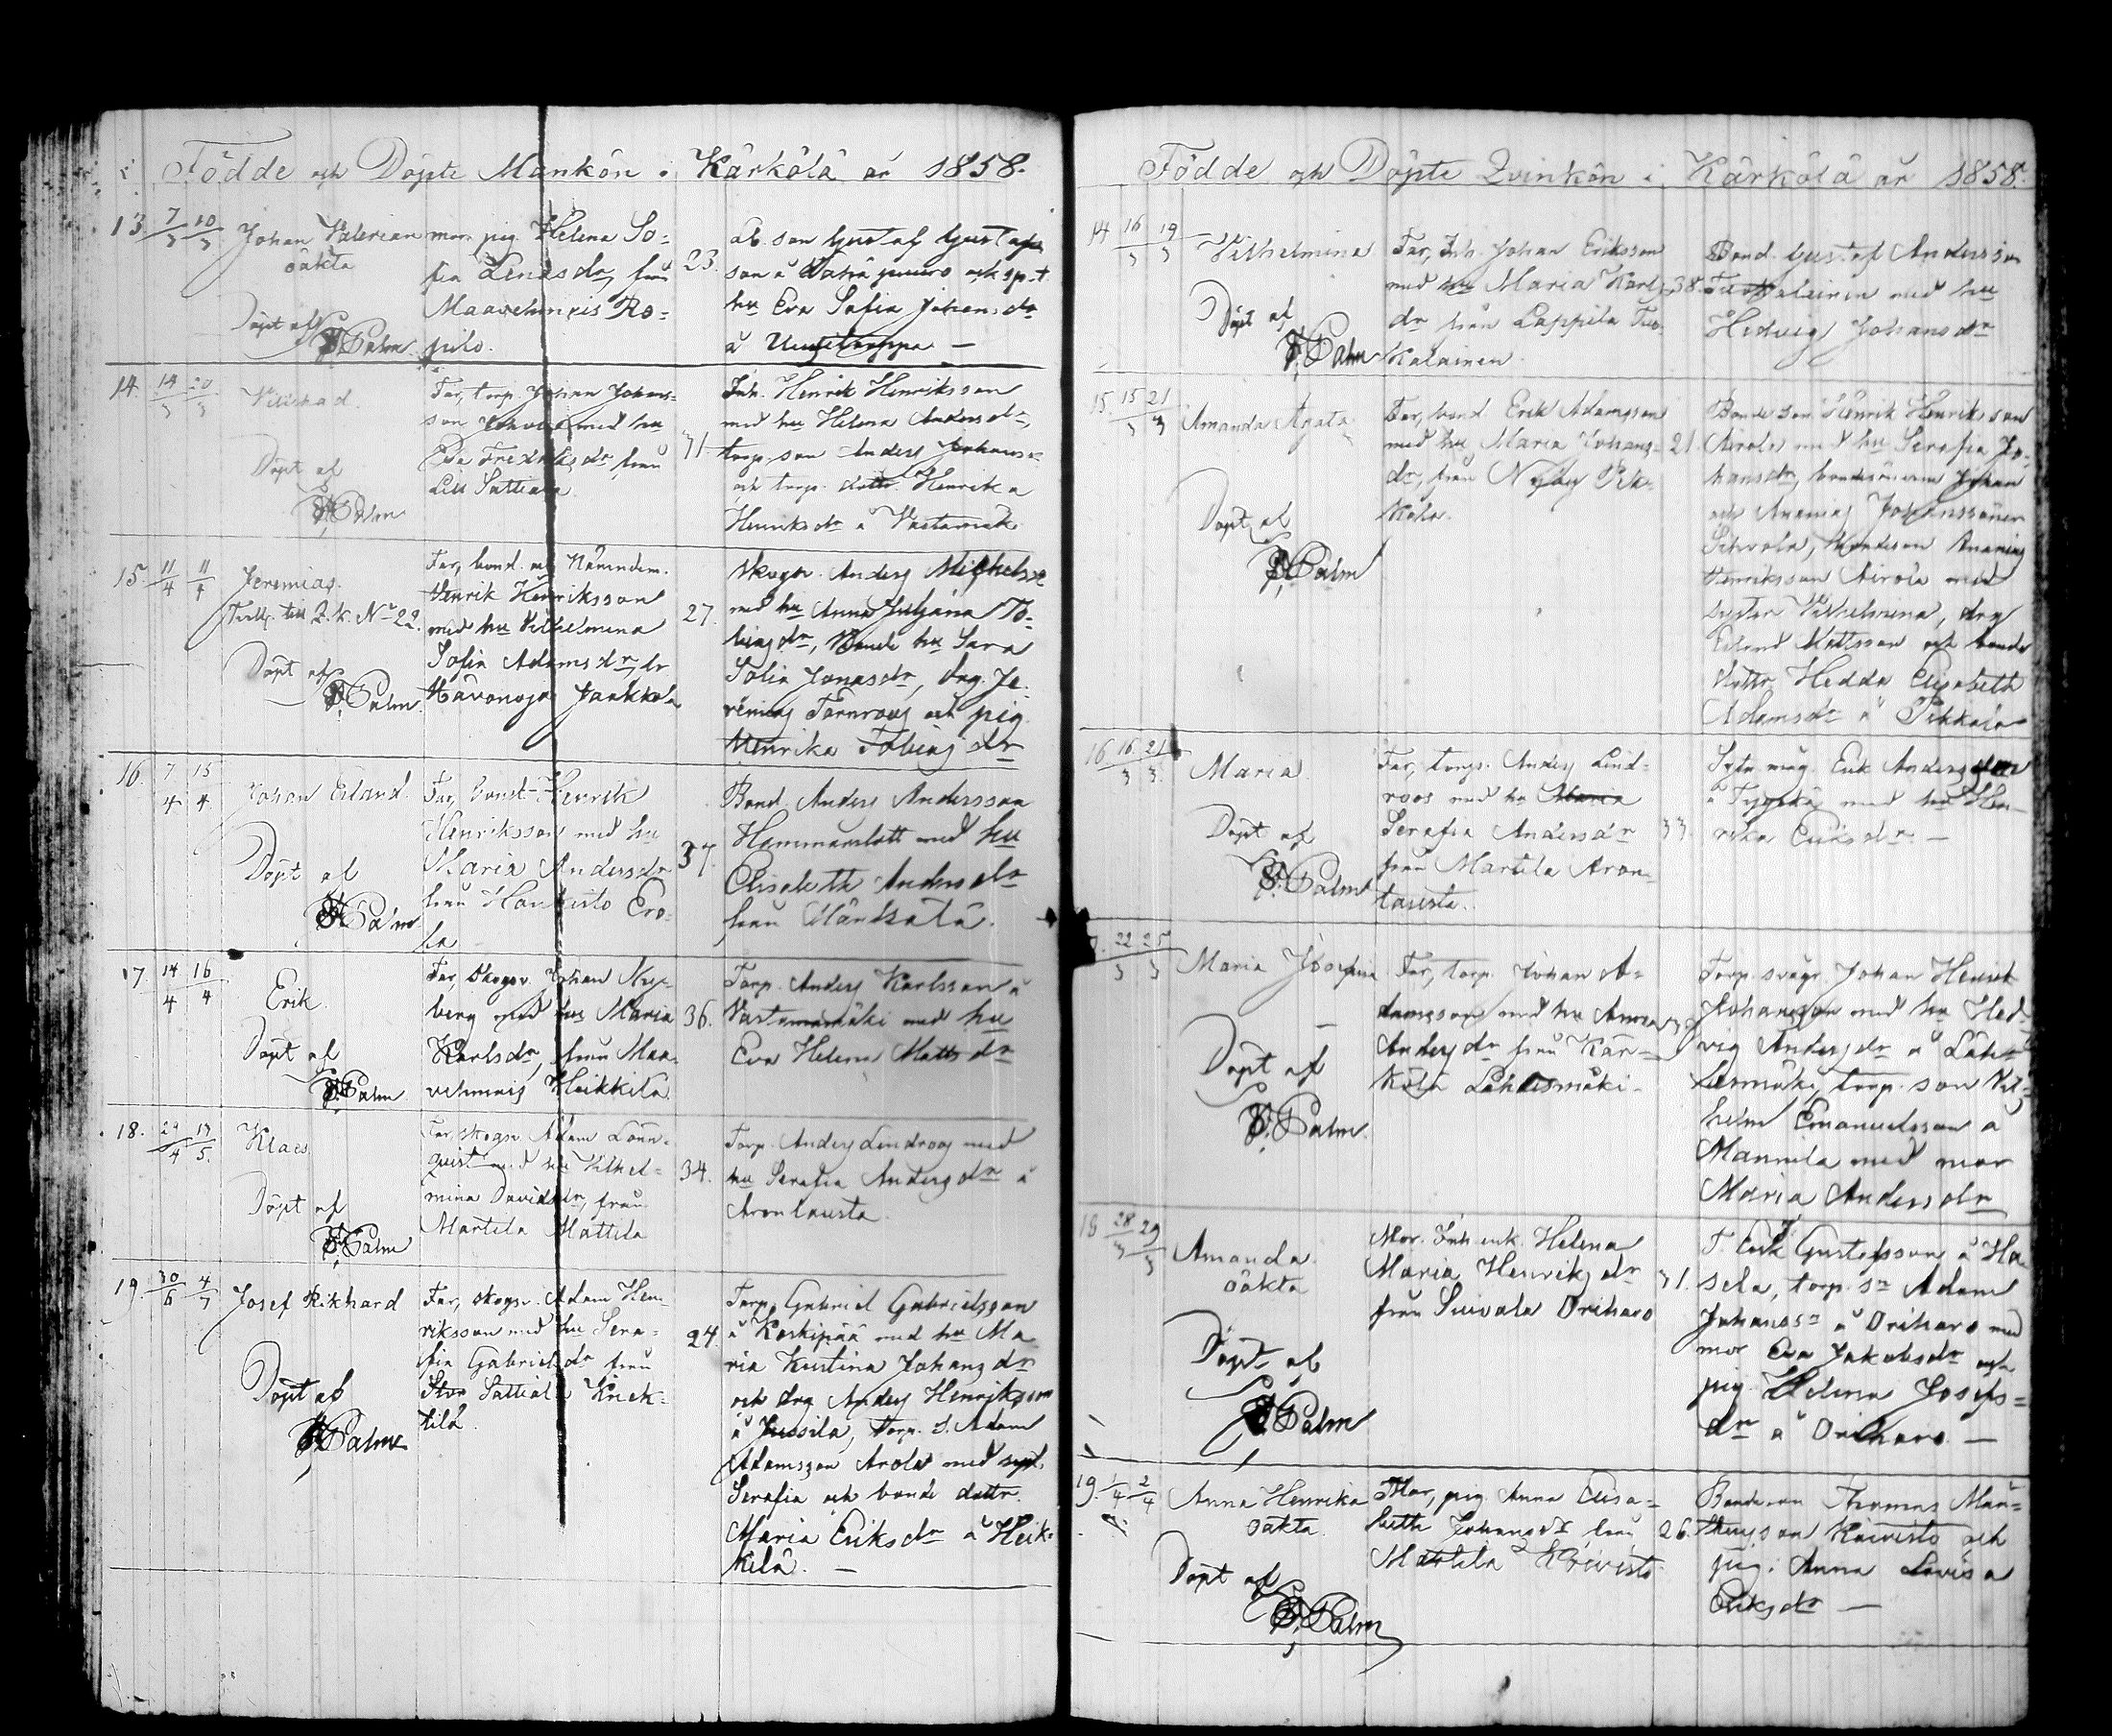 Födde och Döpte Mankön i Kärkölä år 1858.
13. 7/3 10/3 Johan Valerian
oäkta
Döpt af
Palm
mor, pig. Helena So-
fia Lenasdr, från
Maavehmais Ro-
pilo.
23.
son Gustaf Gustafs-
son å och
hu Eva Sofia Johansdr
å
14. 14/3 20/3 Vilihad.
Döpt af
Palm
Far, torp. Johan Johans-
son med hu
Eva Fredriksdr från
Lill Sattiala
31
Inh. Henrik Henriksson
med hu Helena Andersdr,
torp. son Anders Johanss-
och torp. dottr. Henrika
Henriksdr å Vastamäki
15. 11/4 11/4 Jeremias.
Tvill. till Q.k. No 22.
Döpt af
Palm.
Far, bond. och Nämndem.
Henrik Henriksson
med hu Vilhelmina
Sofia Adamsdr, fr
Hävonoja Jaakkola
27.
Skogv. Anders Michelss
med hu Anna Juliana To-
biasdr, Bonde hu Sara
Sofia Jonasdr, drg. Je-
remias Törnroos och pig.
Henrika Tobiasdr
16. 7/4 15/4 Johan Erland.
Döpt af
Palm
Far, bond. Henrik
Henriksson med hu
Maria Andersdr
från Hongisto Ero-
la
37.
Bond. Anders Andersson
Hammarslott med hu
Elisabeth Andersdr
från Mäntsälä.
17. 14/4 16/4 Erik.
Döpt af
Palm
Far, Skogv. Johan Ny-
berg med hu Maria
Karlsdr, från Maa-
vehmais Heikkilä
36.
Torp. Anders Karlsson å
Vastamamäki med hu
Eva Helena Mattsdr
18. 29/4 13/5. Klaes
Döpt af
Palm
Far, skogv. Adam Lönn-
qvist med hu Vilhel-
mina Davidsdr, från
Martila Mattila
34.
Torp. Anders Lindroos med
hu Serafia Andersdr å
Arontausta.
19. 30/6 4/7 Josef Rikhard
Döpt af
Palm
Far, skogv. Adam Hen-
riksson med hu Sera-
fia Gabrielsdr från
Stor Sattiala Knek-
tilä.
24.
Torp. Gabriel Gabrielsson
å Koskipää med hu Ma-
ria Kristina Johansdr
och drg Anders Henriksson
å Jussila, torp. s. Adam
Adamsson Arola med syst.
Serafia och bonde dottr.
Maria Eriksdr å Heik-
kilä. —
Födde och Döpte Qvinkön i Kärkölä år 1858.
14 16/3 19/3 Vilhelmina
Döpt af
Palm
Far, Inh. Johan Eriksson
med hu Maria Karls-
dr från Lappila Tuo-
kalainen.
38.
Bond. Gustaf Andersson
Tuokalainen med hu
Hedvig Johansdr
15. 15/3 21/3 Amanda Agata
Döpt af
Palm
Far, bond. Erik Adamsson
med hu Maria Johans-
dr, från Nyby Pik-
kala.
21.
Bonde son Henrik Henriksson
Airola med hu Serafia Jo-
hansdr, bondsönerna Johan
och Ananias Johanssöner
bondeson Ananias
Henriksson Airola med
syster Vilhelmina, drg
Erland Mattsson och bonde
dottr Hedda Elisabeth
Adamsdr å Pikkala
16 16/3 21/3. Maria.
Döpt af
Palm
Far, torp. Anders Lind-
roos med hu Maria
Serafia Andersdr
från Martila Aron-
tausta.
33.
måg. Erik Andersson
å med hu Hen-
rika Eriksdr. —
22/3 25/3 Maria Josefina
Döpt af
Palm.
Far, torp. Johan A-
damsson med hu Anna
Andersdr från Kär-
kölä Lähdesmäki.
Torp. svägr. Johan Henrik
Johansson med hu Hed-
vig Andersdr å Läh-
desmäki, torp. son Vil-
helm Emanuelsson å
Mannila med mor
Maria Andersdr
18 28/3 29/3 Amanda
oäkta
Döpt af
Palm
Mor. Inh. enk. Helena
Maria Henriksdr
från Suivala Oriharo
31.
T. Erik Gustafsson å
torp. sn Adam
Johanssn å Oriharo med
mor Eva Jakobsdr och
pig. Helena Josefs-
dr å Oriharo —
19. 1/4 2/4 Anna Henrika
oäkta.
Döpt af
Palm
Mor, pig. Anna Elisa-
beth Johansdr från
Martila Koivisto
26.
Bondeson Thomas
Koivisto och
pig. Anna Lovisa
Eriksdr —